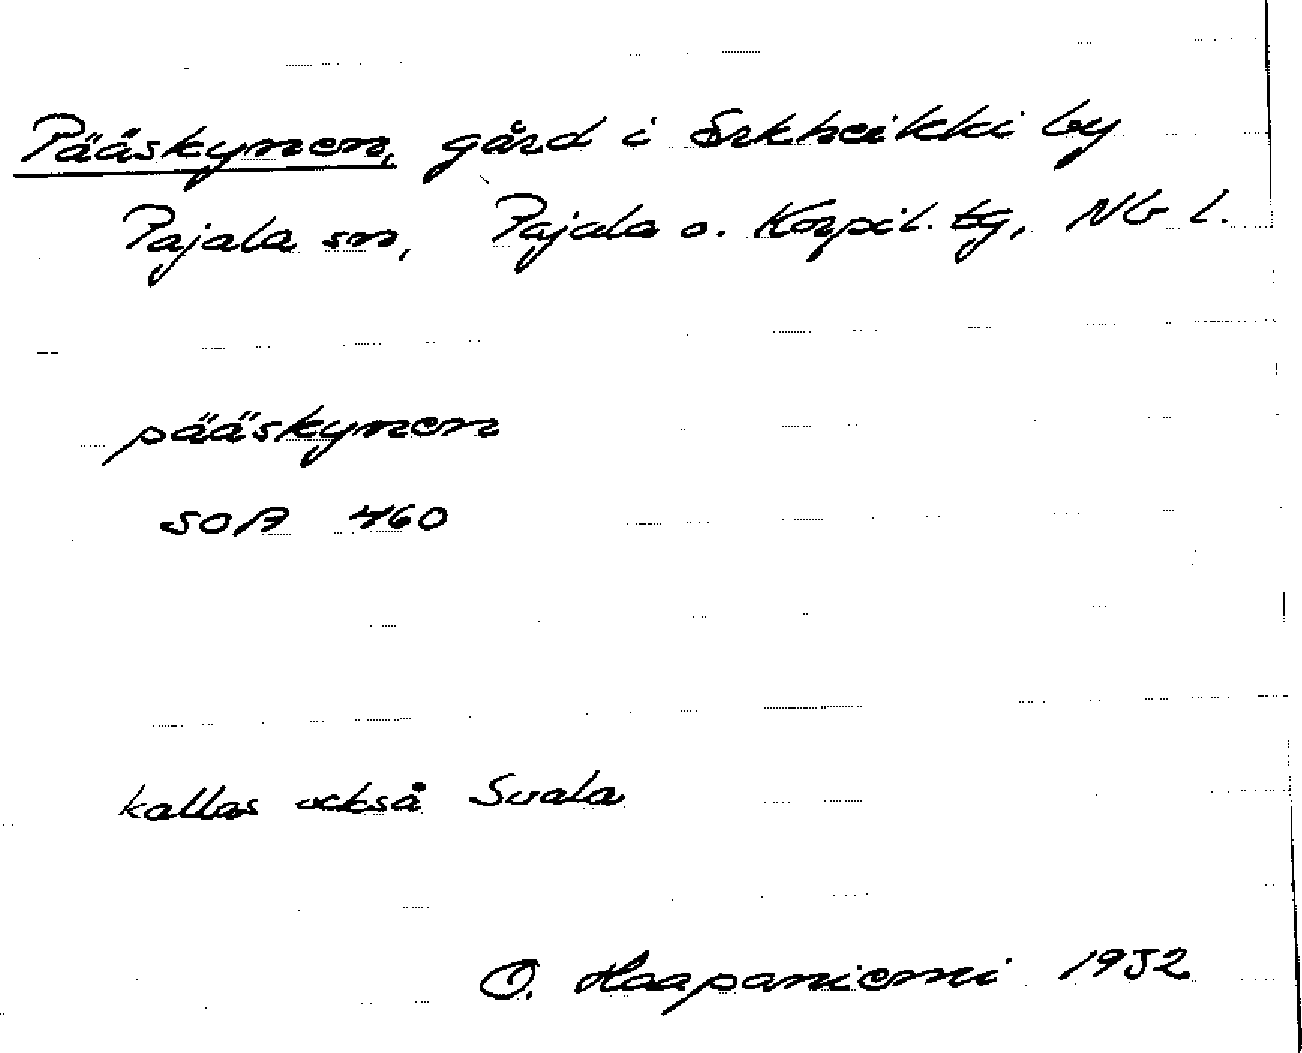 Pääskynen, gård i Erkheikki by
Pajala sn, Pajala o. Korpil. tg, Nb l.
pääskynen
SOA 460
kallas också Svala
O. Haapaniemi 1952